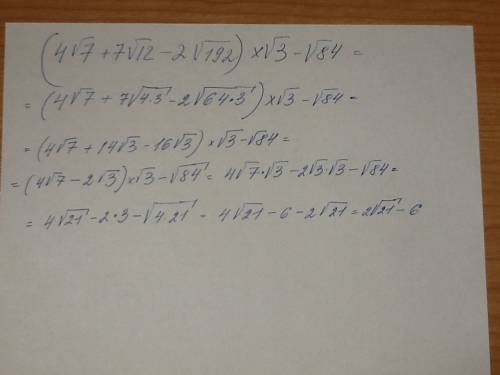 (4√7 + 7√12 − 2√192) × √3 − √84 =
= (4√7 + 7√4·3 − 2√64·3) × √3 − √84 =
= (4√7 + 14√3 − 16√3) × √3 − √84 =
= (4√7 − 2√3) × √3 − √84 = 4√7·√3 − 2√3·√3 − √84 =
= 4√21 − 2·3 − √4·21 = 4√21 − 6 − 2√21 = 2√21 − 6